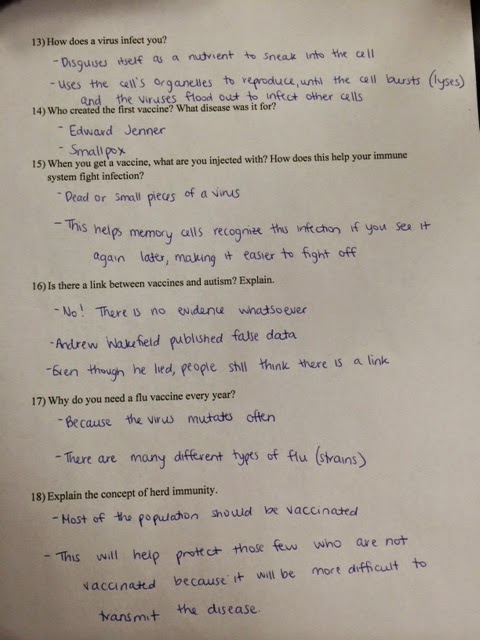 13) How does a virus infect you?
- Disguises itself as a nutrient to sneak into the cell
- Uses the cell's organelles to reproduce, until the cell bursts (lyses)
and the viruses flood out to infect other cells
14) Who created the first vaccine? What disease was it for?
- Edward Jenner
- Smallpox
15) When you get a vaccine, what are you injected with? How does this help your immune
system fight infection?
- Dead or small pieces of a virus
- This helps memory cells recognize this infection if you see it
again later, making it easier to fight off
16) Is there a link between vaccines and autism? Explain.
- No! There is no evidence whatsoever
- Andrew Wakefield published false data
- Even though he lied, people still think there is a link
17) Why do you need a flu vaccine every year?
- Because the virus mutates often
- There are many different types of flu (strains)
18) Explain the concept of herd immunity.
- Most of the population should be vaccinated
- This will help protect those few who are not
vaccinated because it will be more difficult to
transmit the disease.